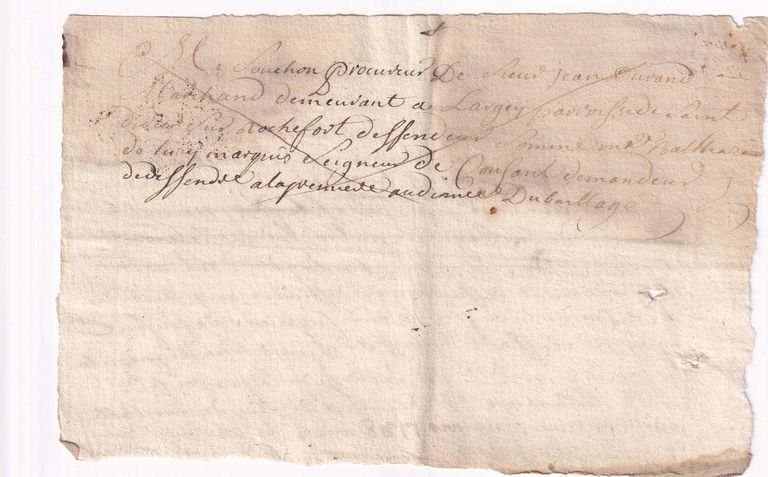 Me Souchon procureur De Sieur Jean Durand
Marchand demeurant a Largey parroisse de Saint
didier sur Rochefort deffendeur Somme mre Balthazard
de luzy marquis Seigneur de Cousant demandeur
de deffendre a la premiere audiance Du baillage